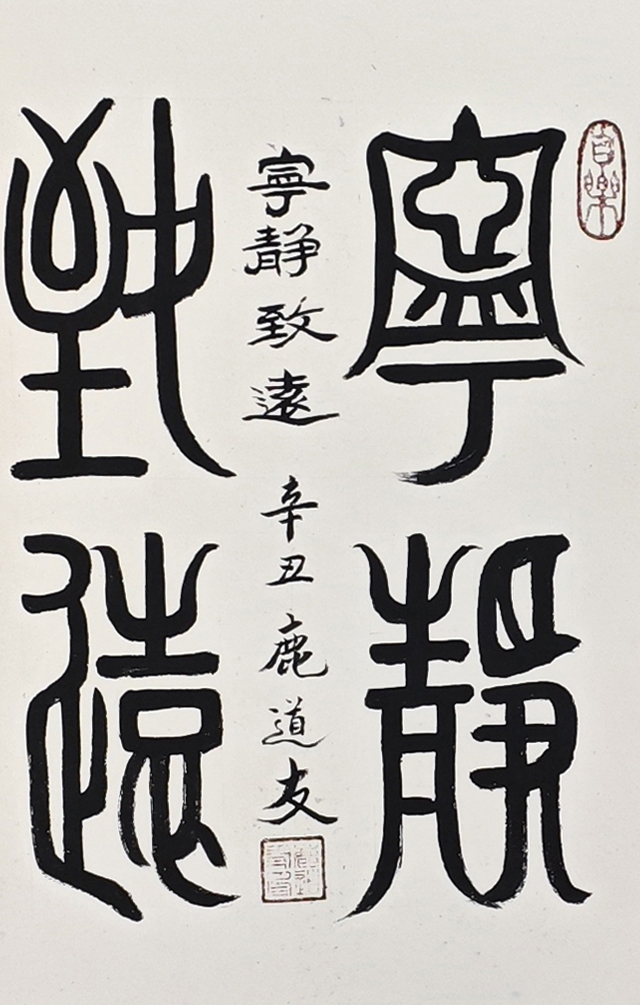 寧靜
寧静致遠 辛丑 鹿道友
致遠
自樂